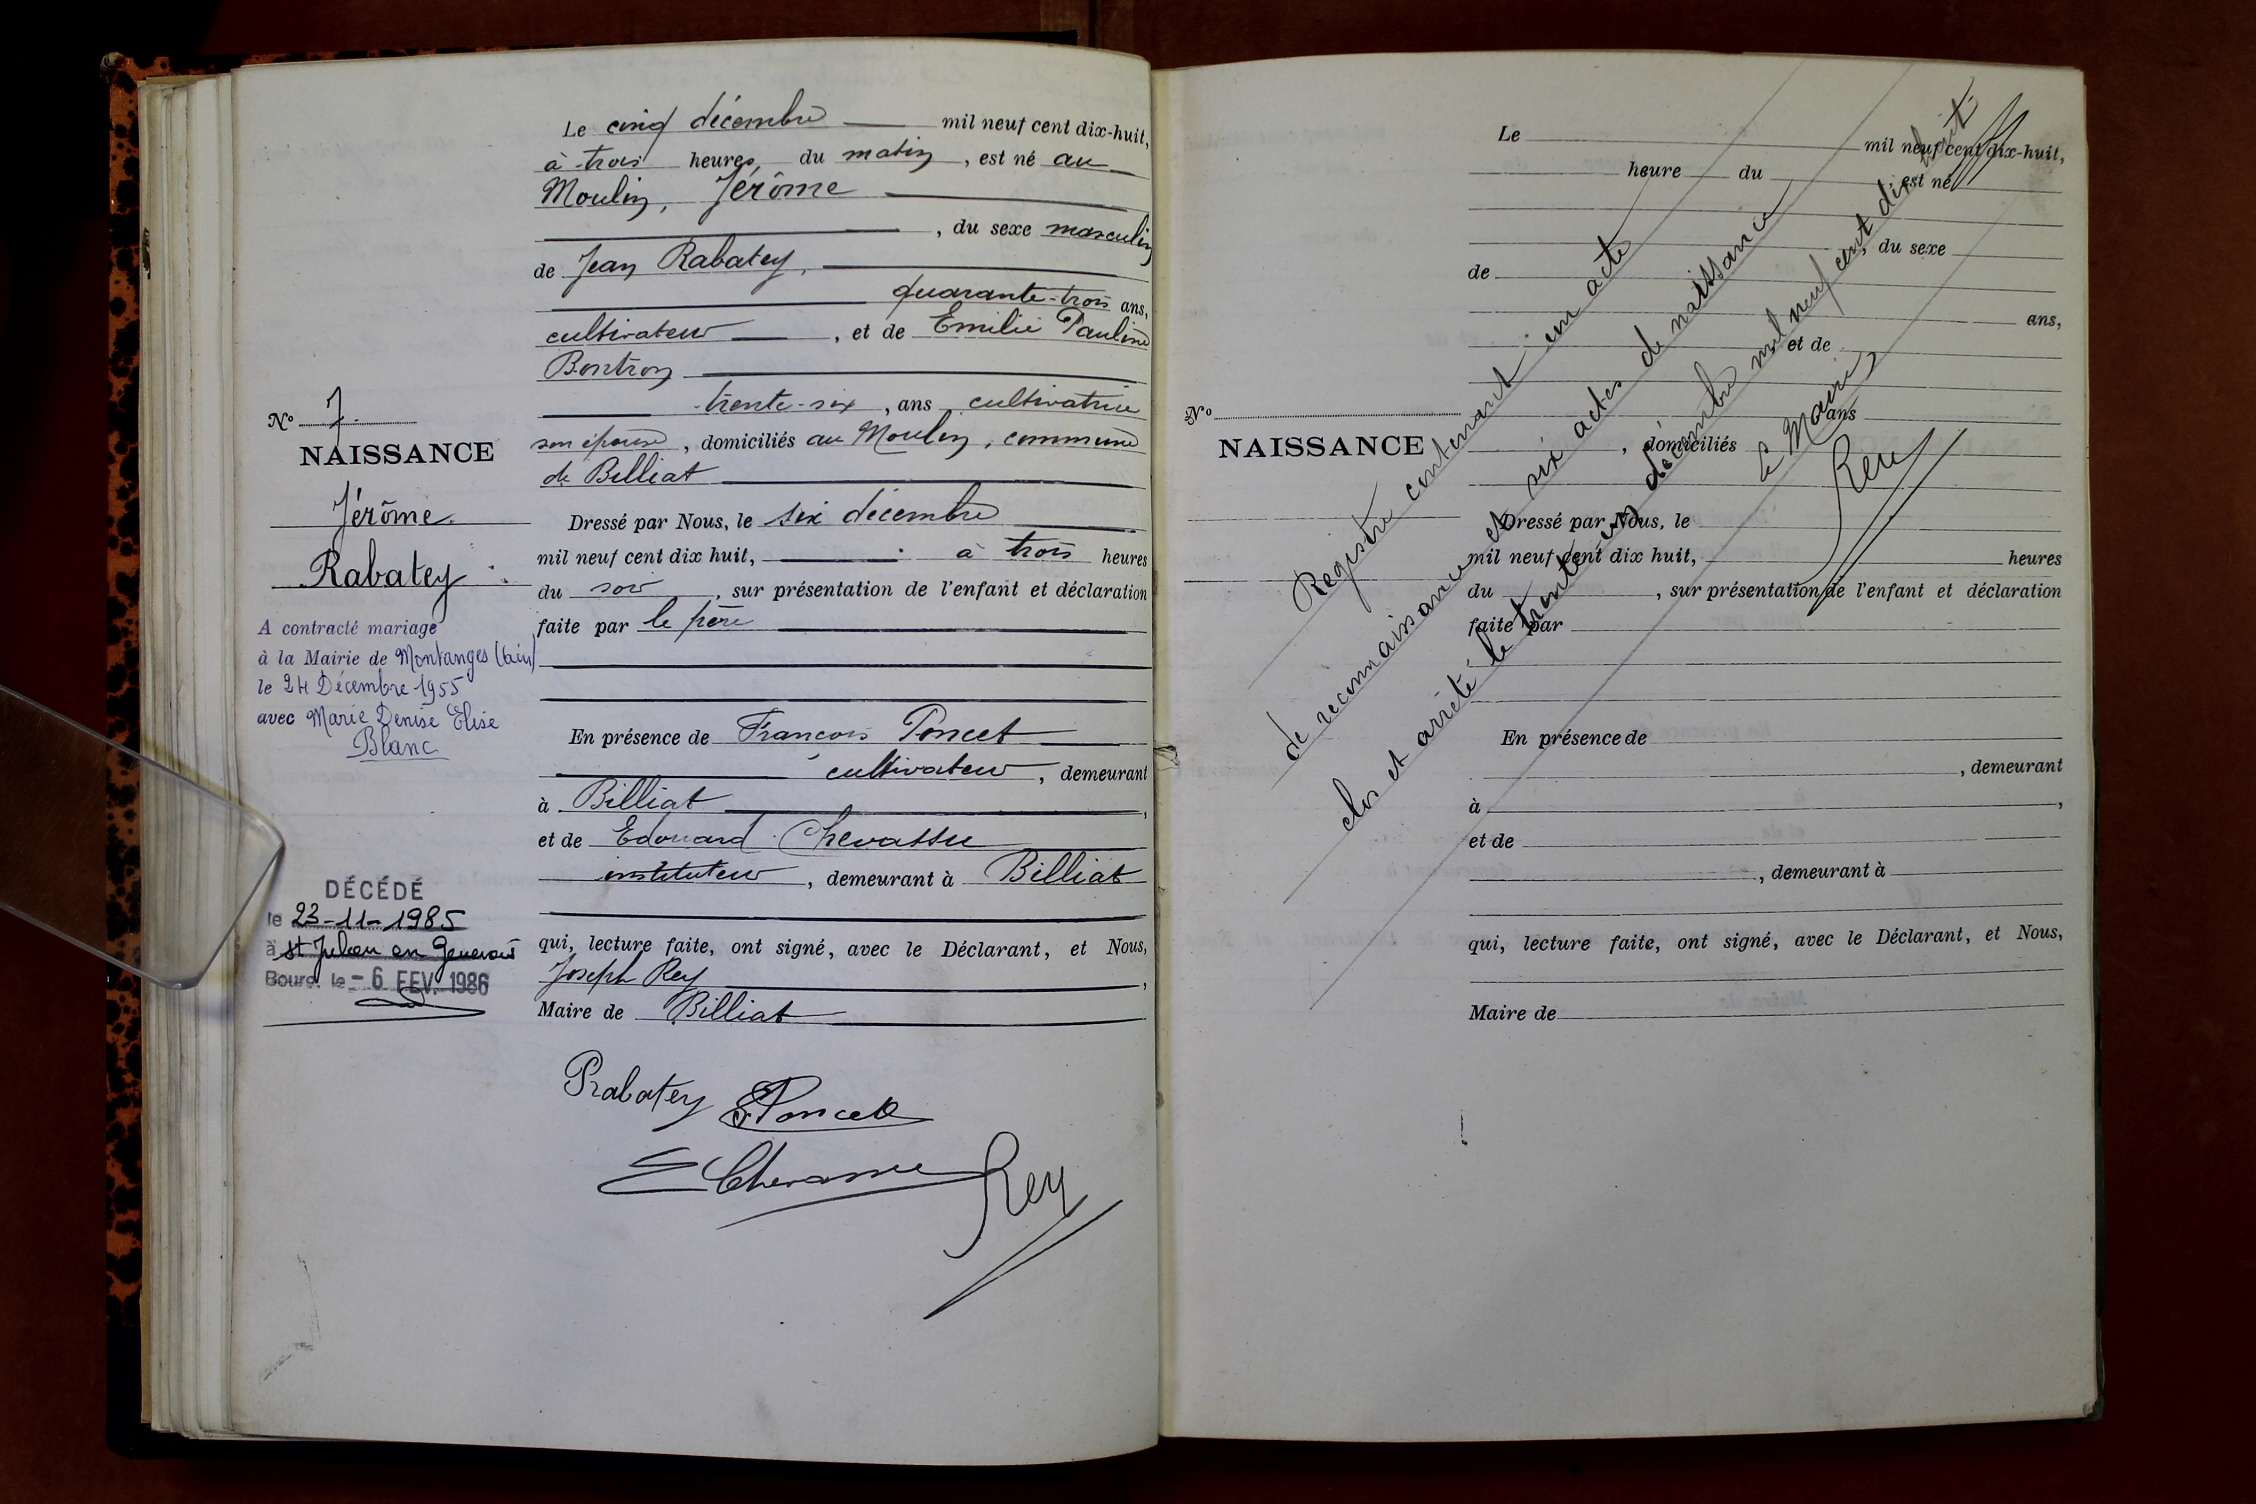 Le cinq décembre mil neuf cent dix-huit,
à trois heures, du matin, est né au
Moulin, Jérôme
, du sexe masculin
de Jean Rabatey,
quarante-trois ans,
cultivateur, et de Emilie Pauline
Bontron
trente-six, ans cultivatrice
son épouse, domiciliés au Moulin, commune
de Billiat
Dressé par Nous, le six décembre
mil neuf cent dix huit, à trois heures
du soir, sur présentation de l'enfant et déclaration
faite par le père
En présence de François Poncet
cultivateur, demeurant
à Billiat,
et de Edouard Chevassu
instituteur, demeurant à Billiat
qui, lecture faite, ont signé, avec le Déclarant, et Nous,
Joseph Rey,
Maire de Billiat
Rabatey Poncet
E Chevassu Rey
No 7.
NAISSANCE
Jérôme
Rabatey
A contracté mariage
à la Mairie de Montanges (Ain)
le 24 Décembre 1955
avec Marie Denise Elise
Blanc
DÉCÉDÉ
le 23-11-1985
à St Julien en Genevois
Bourg, le - 6 FEV. 1986
Le mil neuf cent dix-huit,
heure du, est né
, du sexe
de
ans,
et de
ans
, domiciliés
Dressé par Nous, le
mil neuf cent dix huit, heures
du, sur présentation de l'enfant et déclaration
faite par
En présence de
, demeurant
à,
et de
, demeurant à
qui, lecture faite, ont signé, avec le Déclarant, et Nous,
Maire de
No
NAISSANCE
Registre contenant un acte
de reconnaissance et six actes de naissance
clos et arrêté le trente-un décembre mil neuf cent dix huit.
Le Maire,
Rey